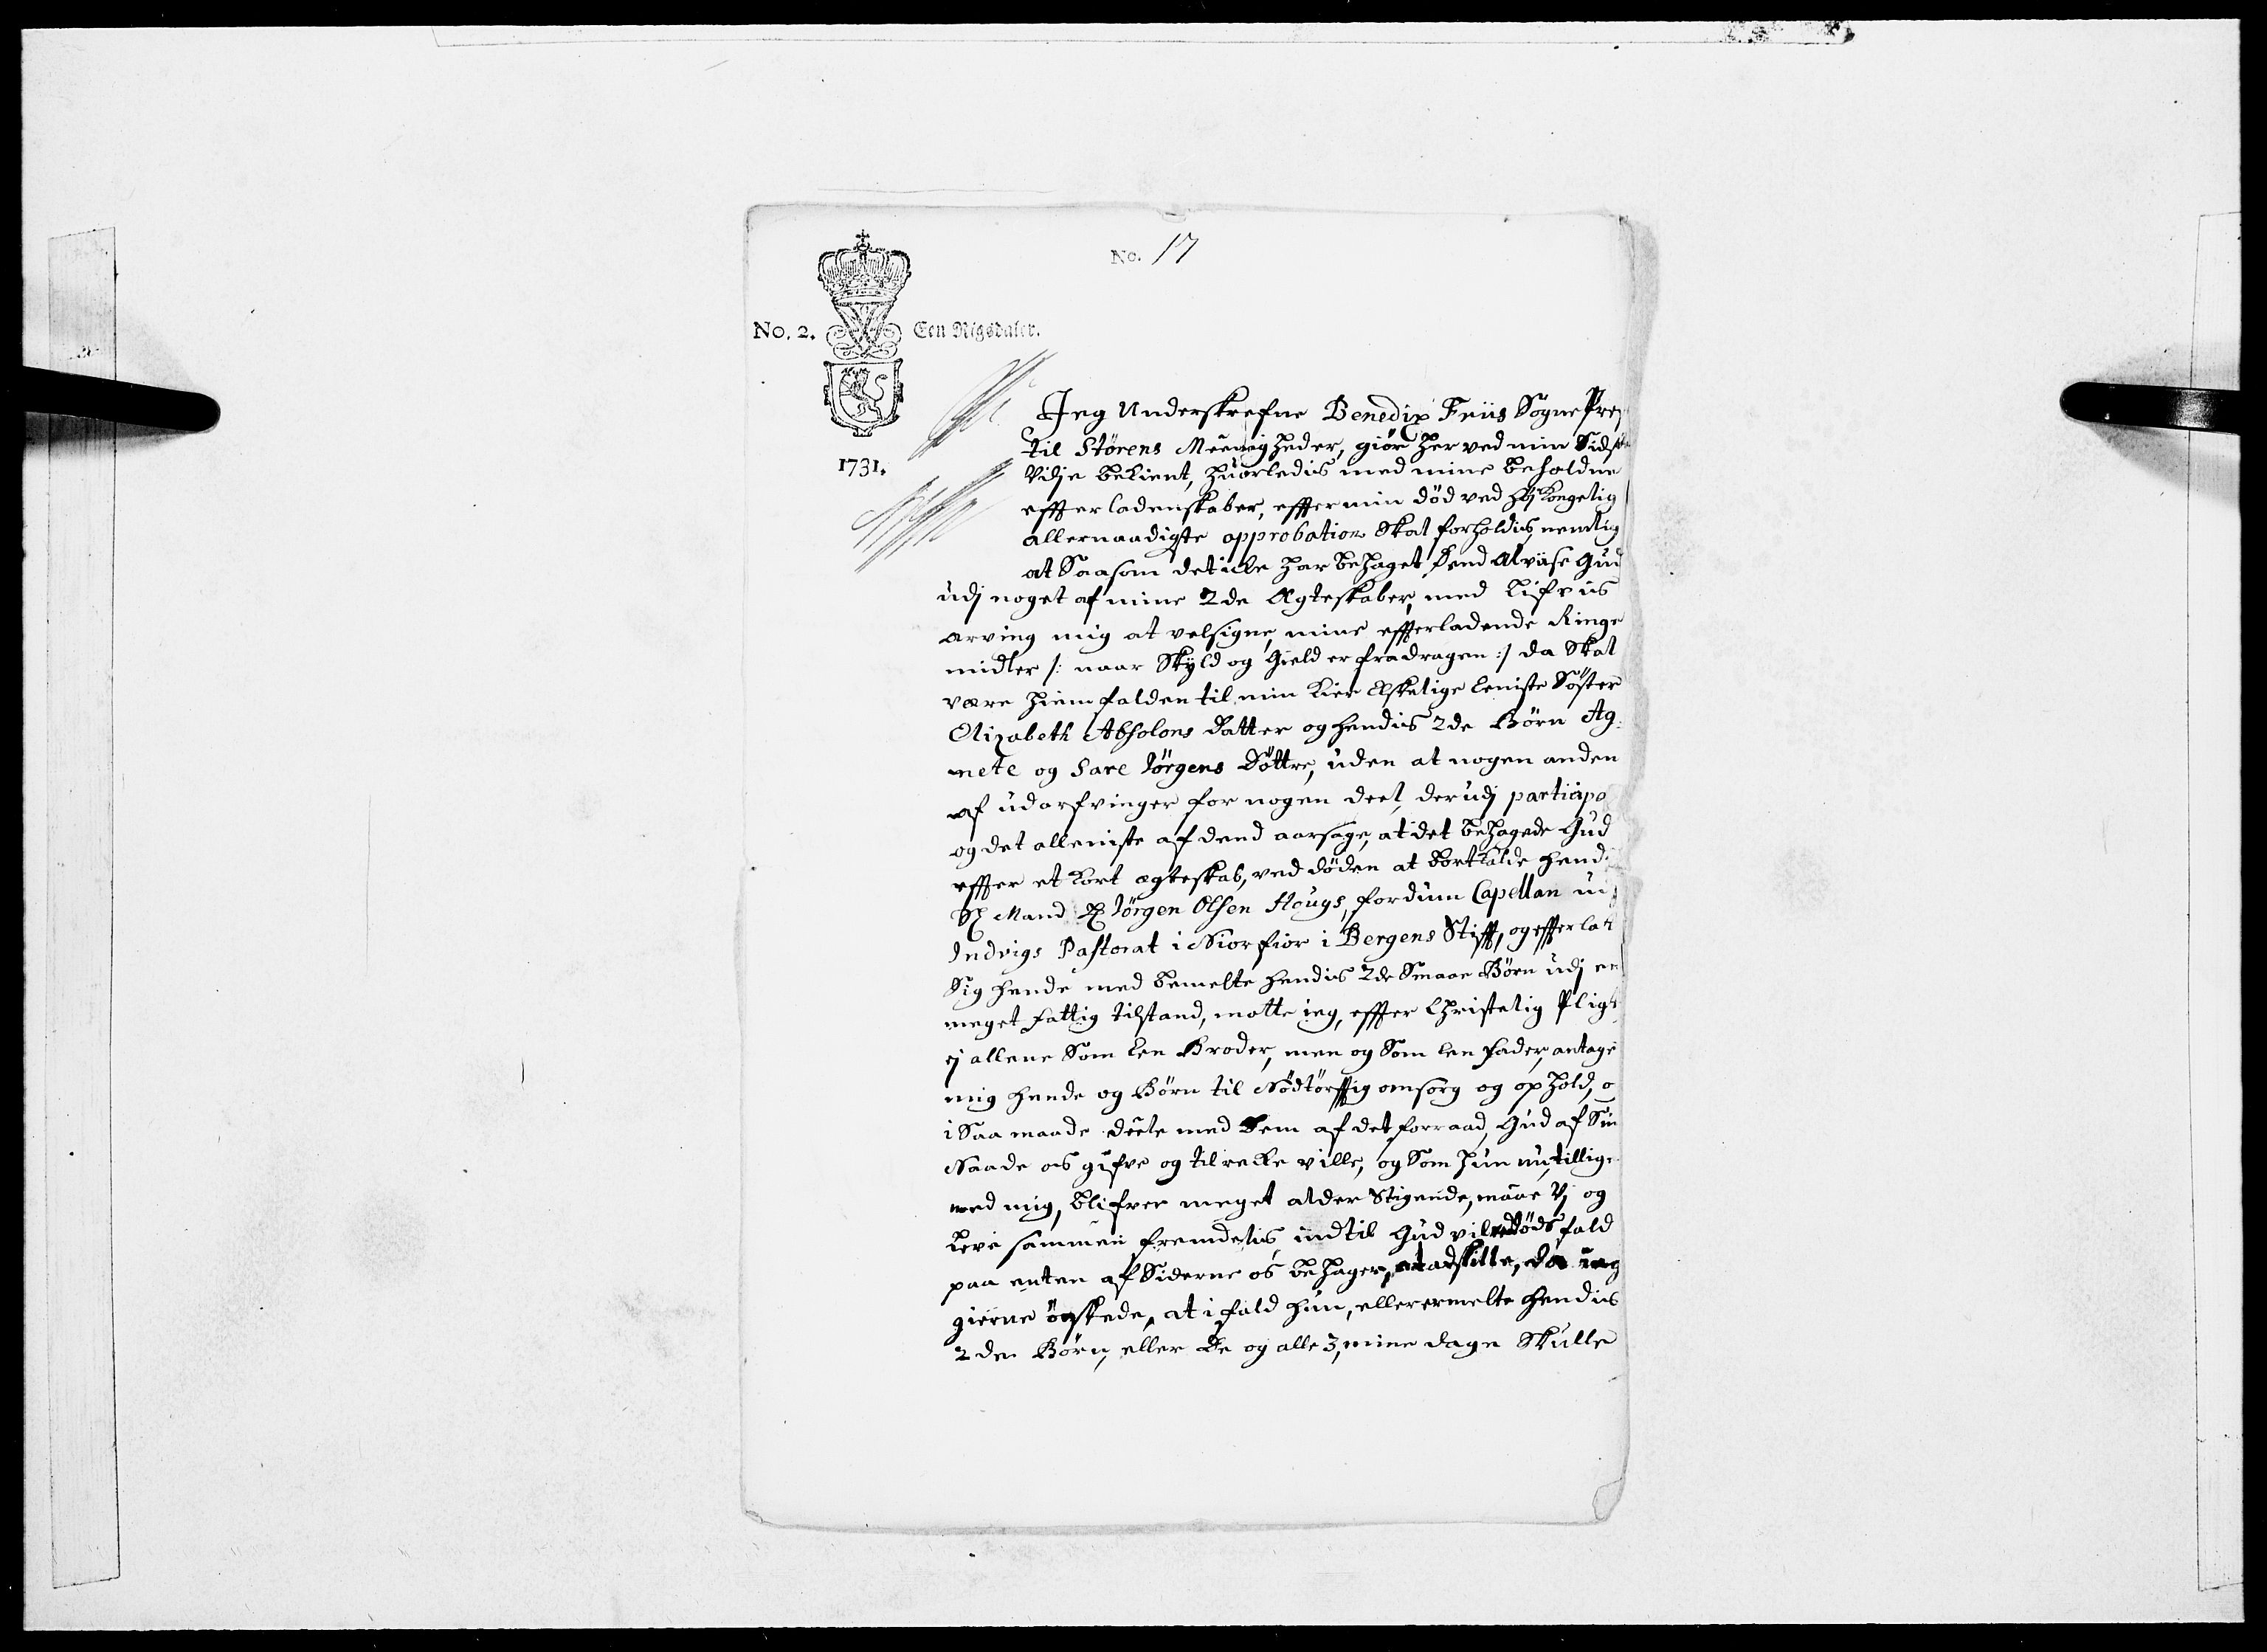 No. 17
No. 2. Een Rigsdaler.
1731.
Jeg Underskrefne Benedix Friis Sogne Pres
til Störens Meenigheder, giör her ved min Sidste
Vilje bekient, huorledis med mine beholdne
effterladenskaber, effter min död ved høy Kongelig
allernaadigste approbation Skal forholdis, nemlig
at Saasom det icke har behaget dend Alviise Gud
udj noget af mine 2de Ægteskaber, med Lifs
arving mig at velsigne, mine effterladende Ringe
midler /: naar Skyld og Gield er fradragen :/ da Skal
være hiemfalden til min kier Elskelige Eeniste Söster
Elizabeth Absolons datter og hendis 2de Börn Ag:
nete og Sare Jörgens Döttre, uden at nogen anden
af udarfvinger for nogen deel, der udj participe
og det alleniste af dend aarsage, at det behagede Gud
effter et kort ægteskab, ved döden at bortkalde hendis
Sl Mand Hr Jörgen Olsen Hougs, fordum Capellan udj
Indvigs Pastorat i Niorfior i Bergens Stifft, og effterlat
Sig hende med bemelte hendis 2de Smaae Börn udj en
meget fattig tilstand, motte ieg, effter Christelig Pligt
ej allene Som Een Broder, men og Som Een fader, antage
mig hende og Börn til Nödtörfftig omsorg og ophold, o
i Saa maade deele med Dem af det forraad, Gud af Sin
Naade os gifve og tilrecke ville, og Som hun nu tillige
med mig, blifver meget alder Stigende, maae Vj og
leve sammen fremdelis, indtil Gud vil ved döds fald
paa enten af Siderne os behager, at adskille, da ieg
gierne önskede, at i fald hun, eller ermelte hendis
2de Börn, eller De og alle 3, mine dage Skulle